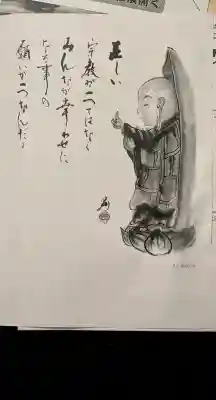 正しい
宗教が一つではなく
みんなが幸わせに
なる事の
願いが一つなんだよ